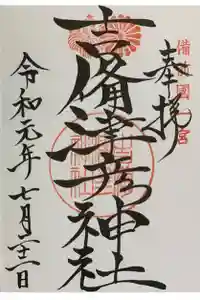 備前國一宮
奉拝
吉備津彦神社
令和元年七月二十一日